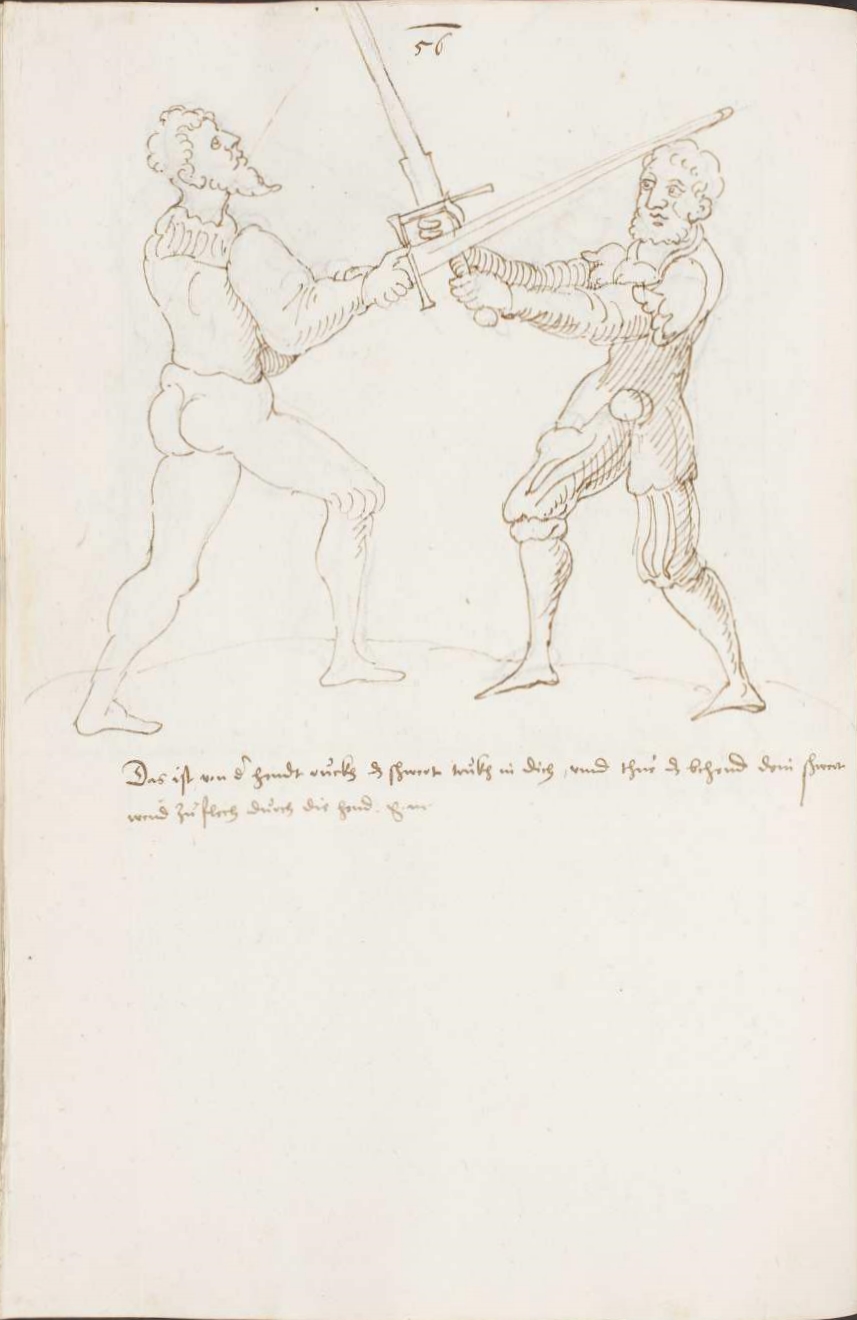 56
Das ist von d' hendt ruckh dz schwert truckh in dich, vnnd thue dz behend dein schwert
wend zu flech durch die hend